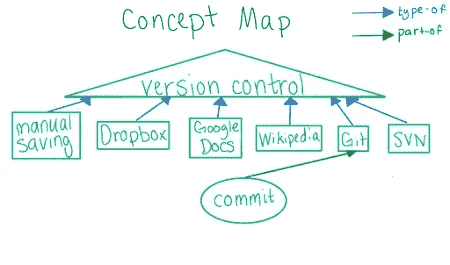 Concept Map
type-of
part-of
version control
manual
saving
Dropbox
Google
Docs
Wikipedia
Git
SVN
commit